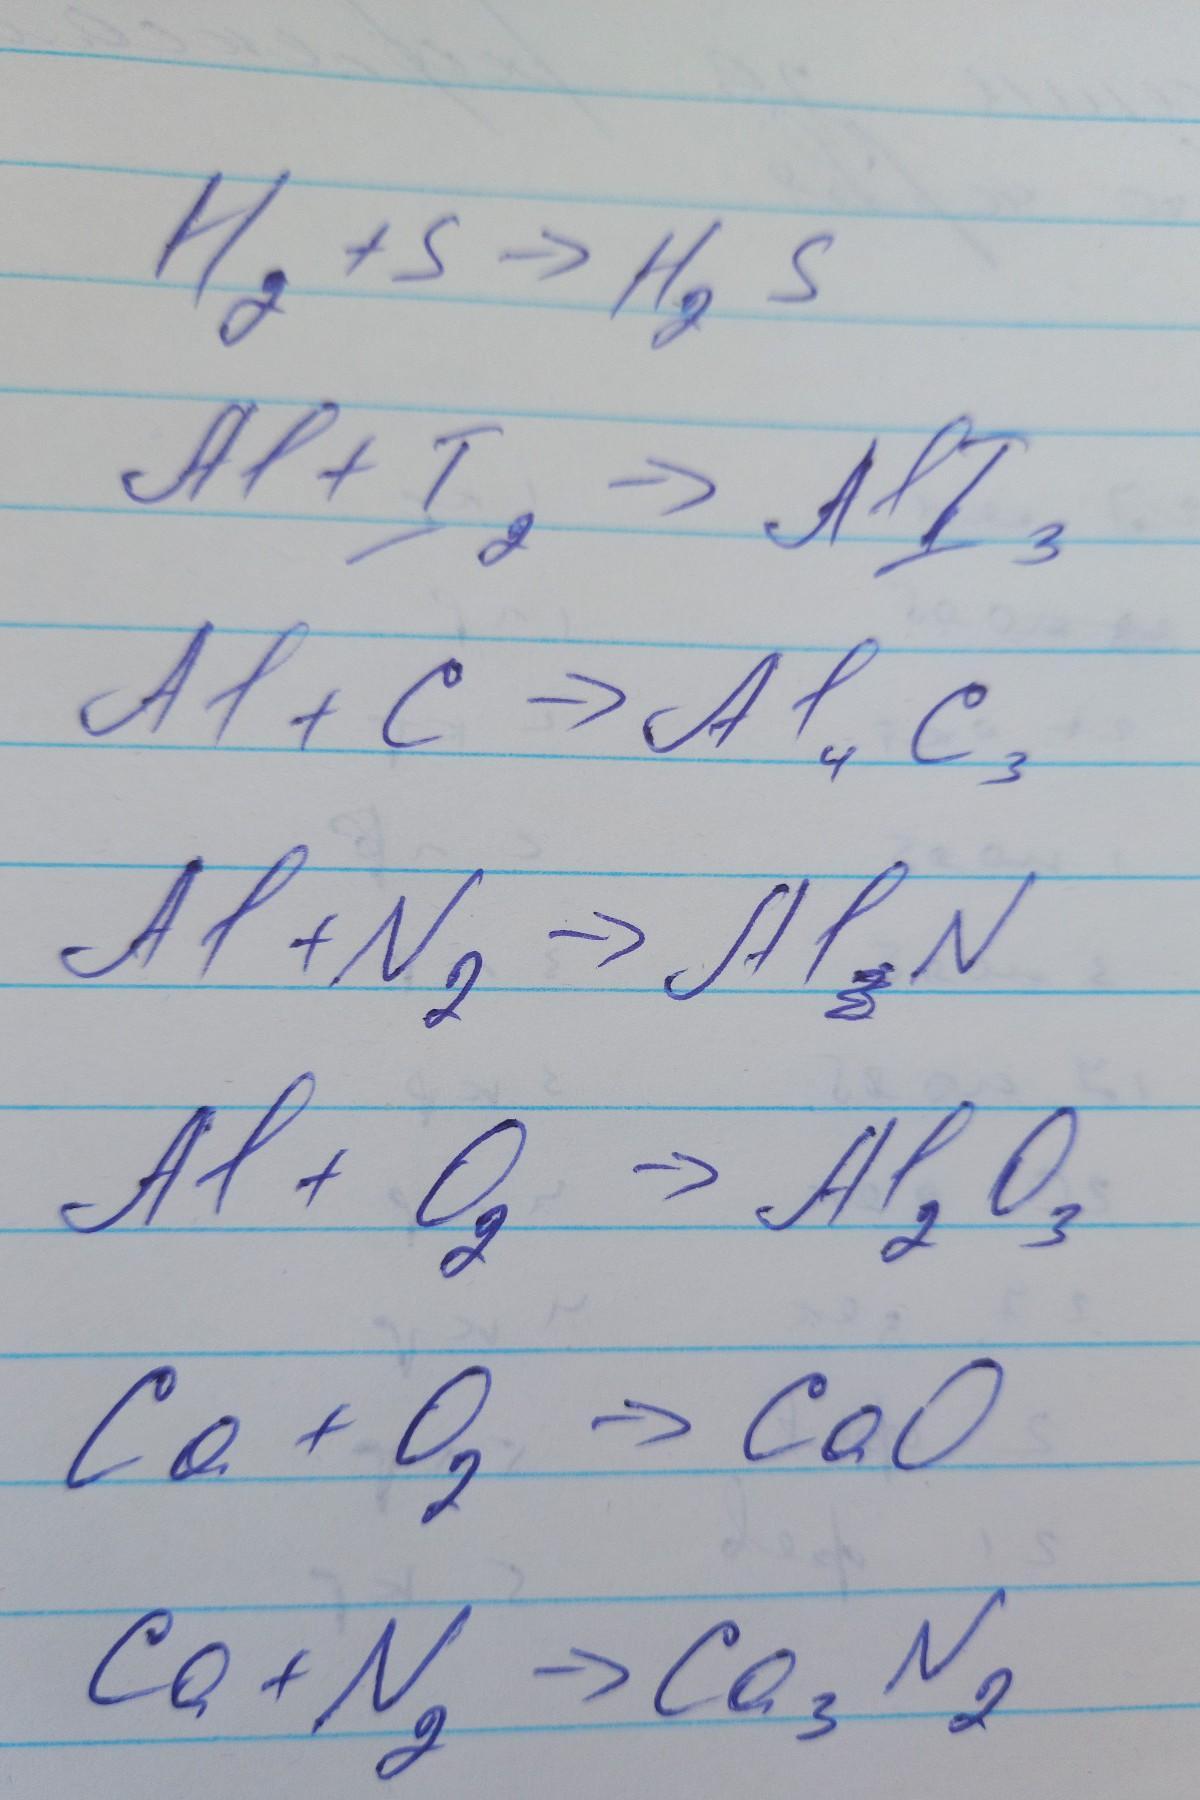 H₂ + S → H₂ S
Al + I₂ → AlI₃
Al + C → Al₄ C₃
Al + N₂ → Al₃ N
Al + O₂ → Al₂ O₃
Ca + O₂ → CaO
Ca + N₂ → Ca₃ N₂